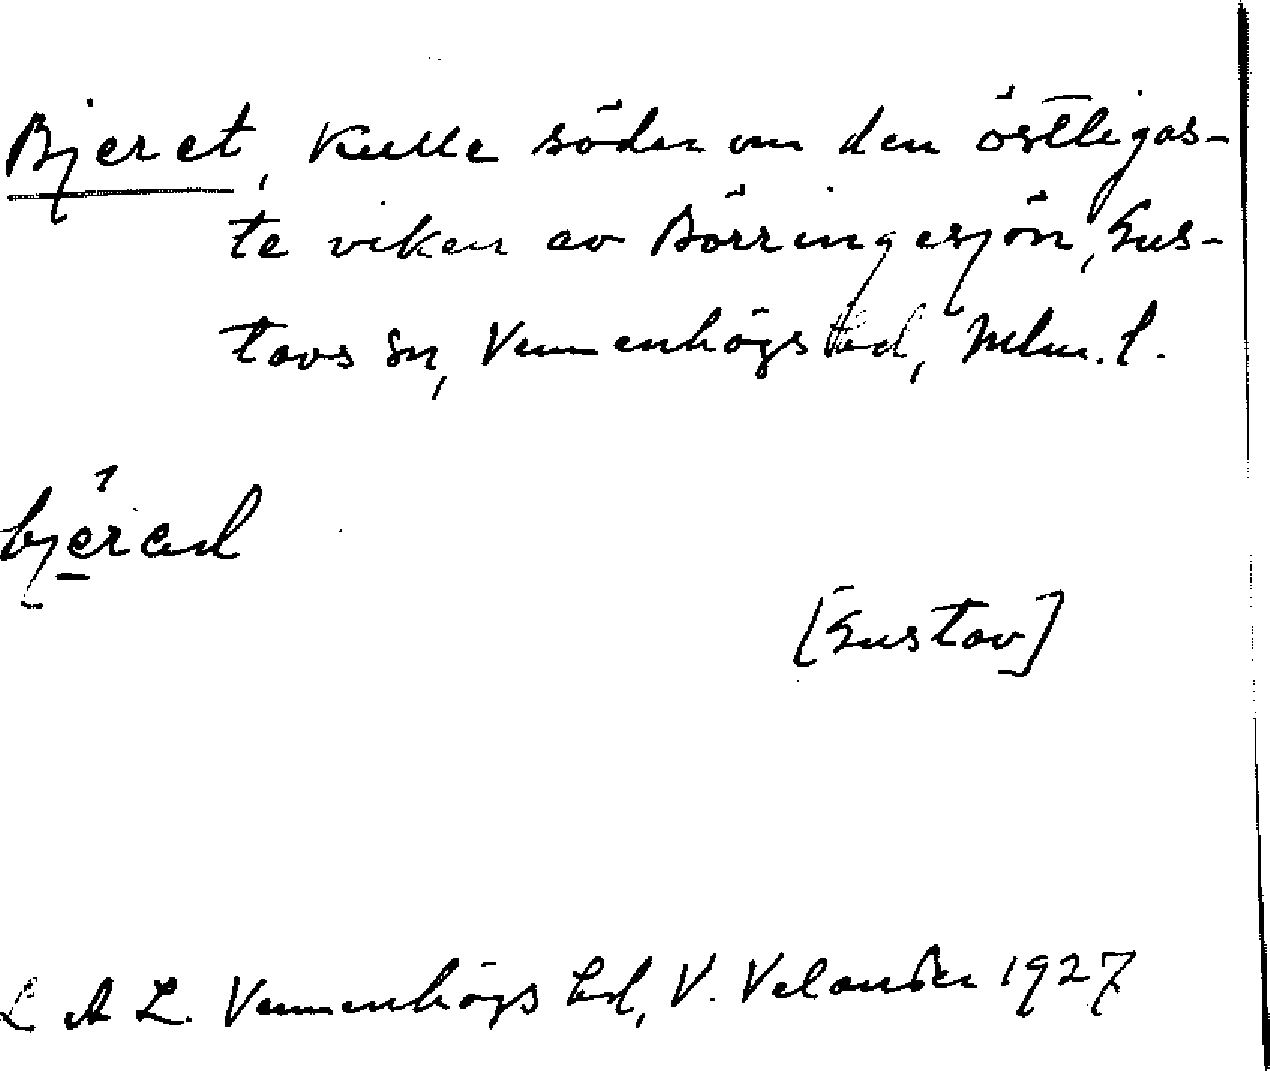 Bjeret, Kulle söder om den östligas-
te viken av Börringesjön, Gus-
tavs sn, Vemmenhögs hd, Mlm. l.
bjerəd
[Gustav]
L A L. Vemmenhögs hd, V. Velander 1927